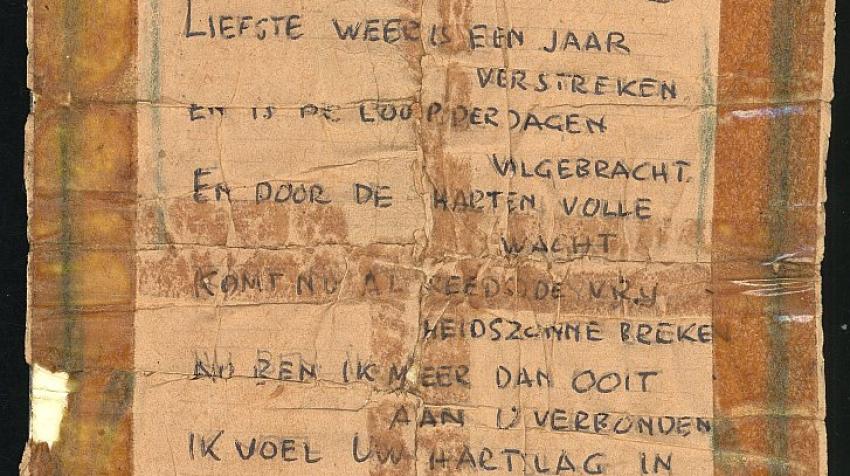 LIEFSTE WEER IS EEN JAAR
VERSTREKEN
EN IS DE LOOP DER DAGEN
VILGEBRACHT
EN DOOR DE HARTEN VOLLE
WACHT
KOMT NU AL REEDS DE VRY
HEIDSZONNE BREKEN
NU BEN IK MEER DAN OOIT
AAN U VERBONDEN
IK VOEL UW HARTSLAG IN